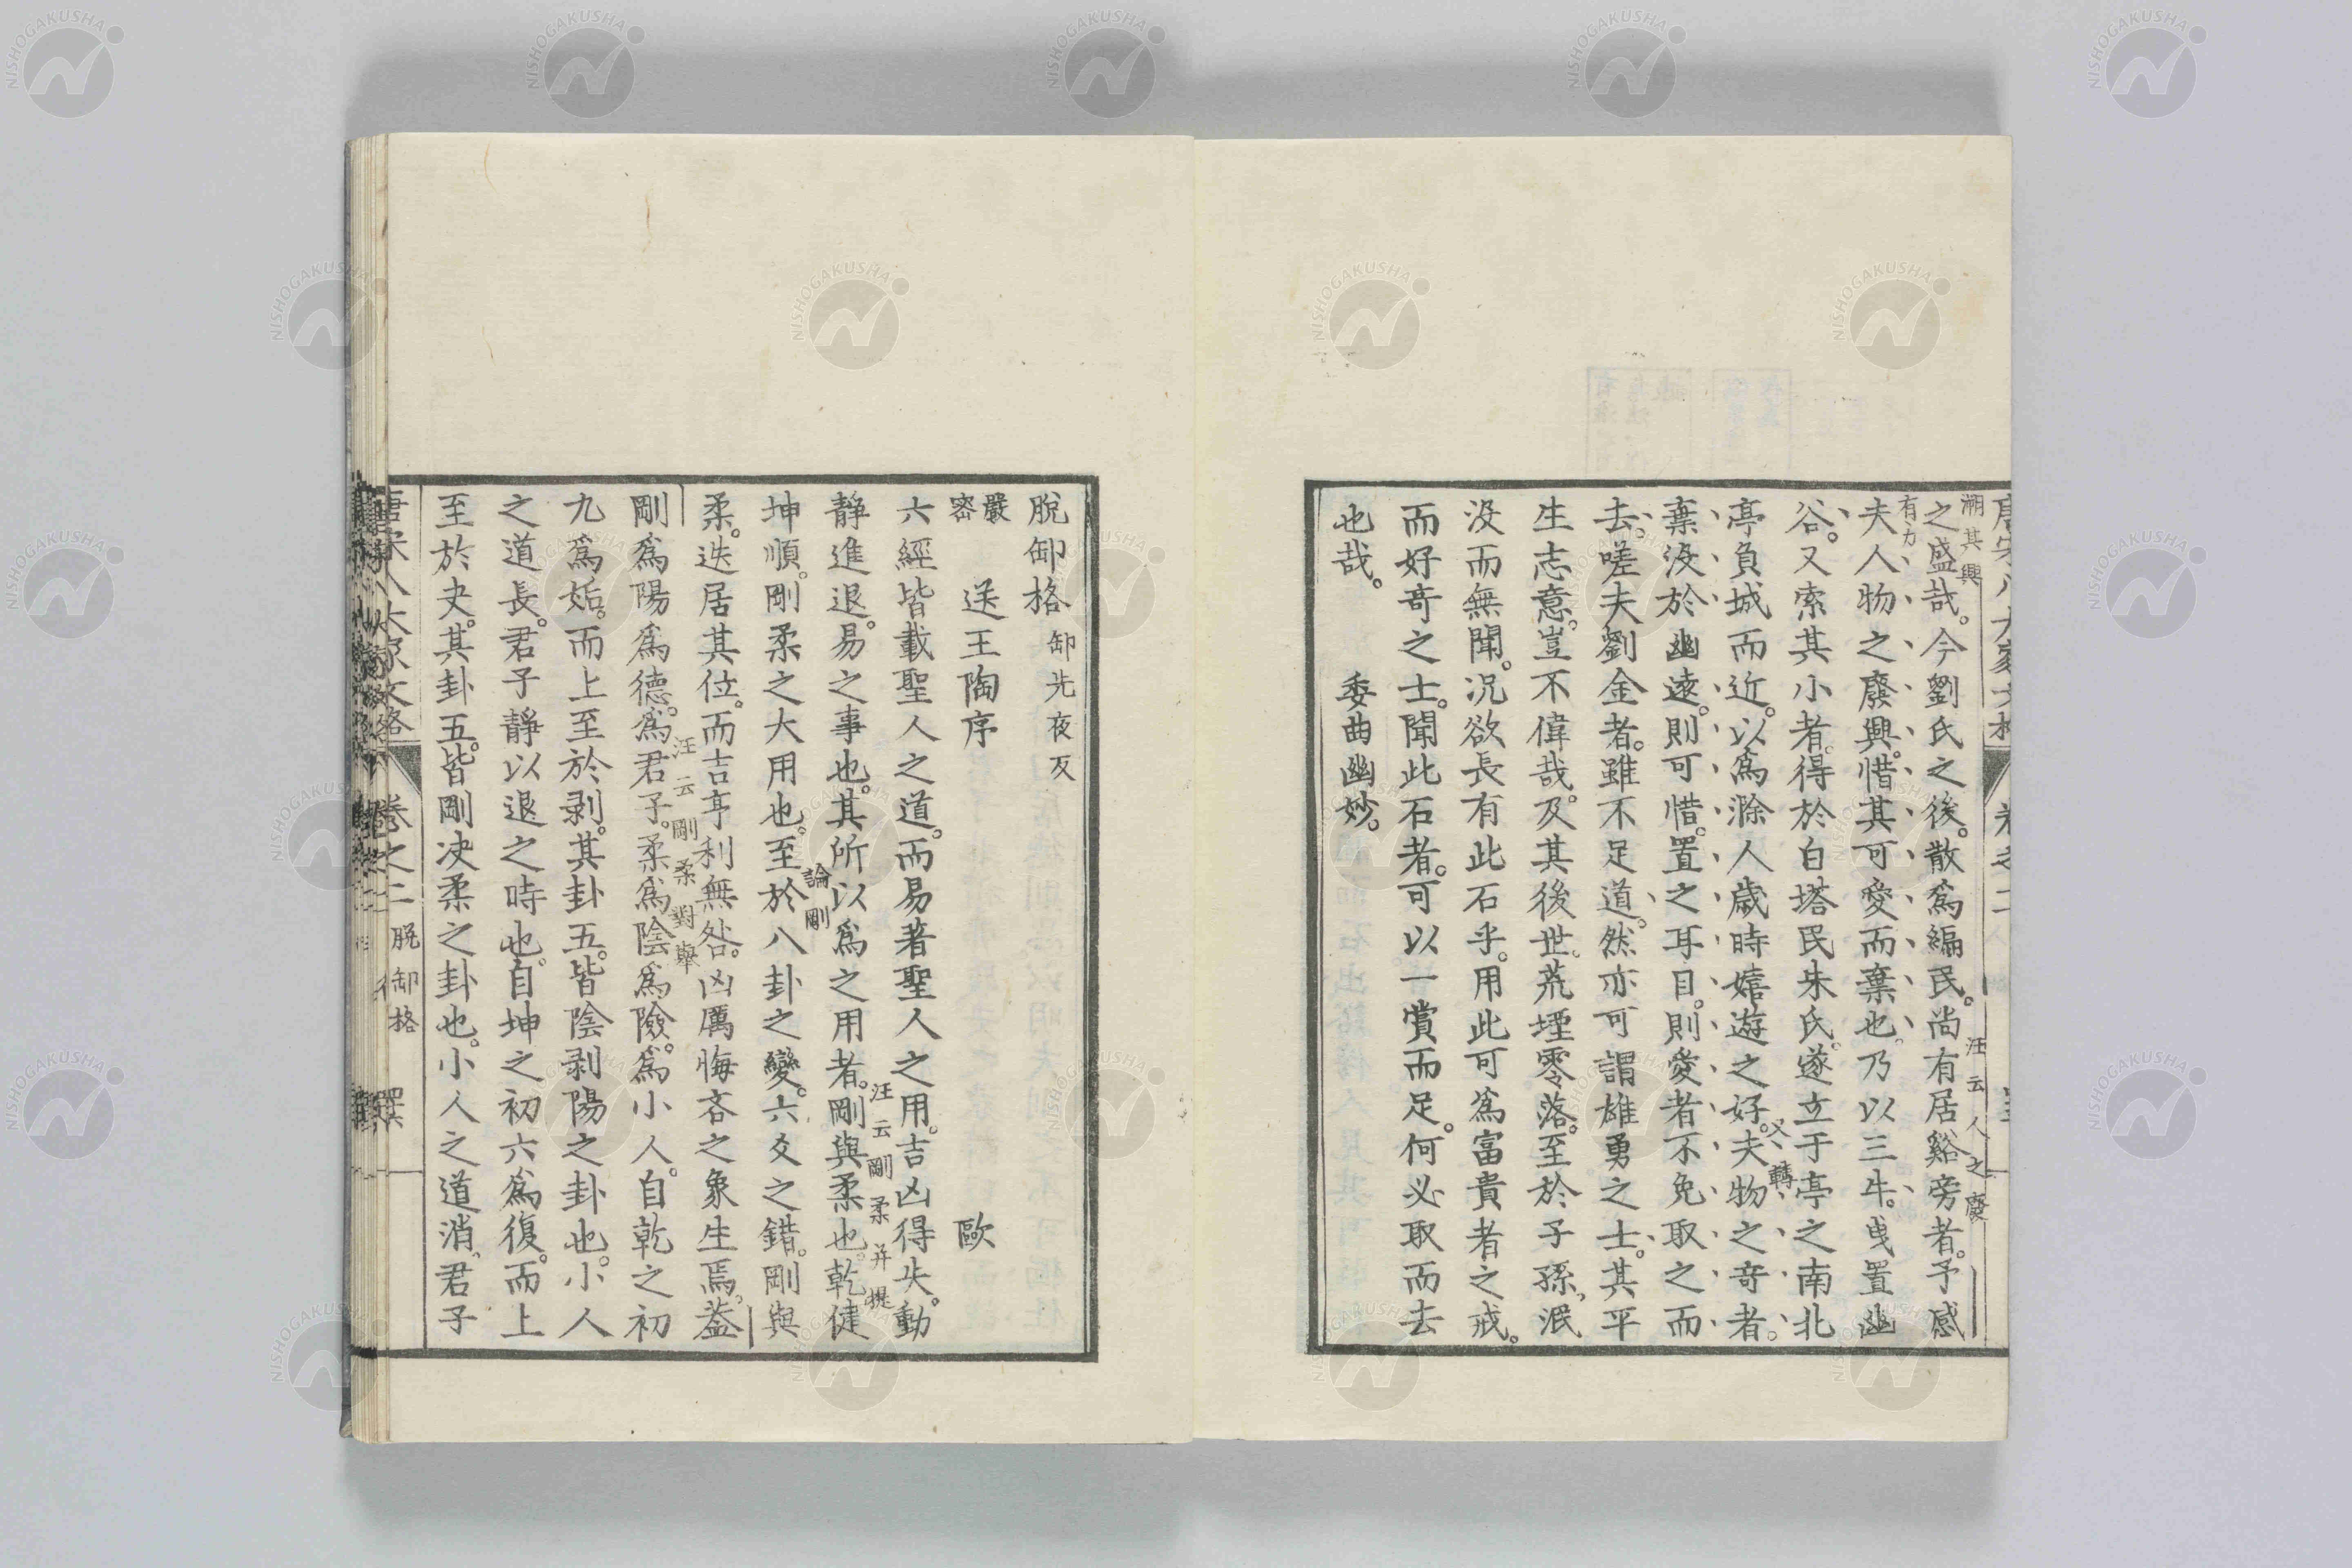 之盛哉。今劉氏之後。散爲編民。尚有居谿旁者。予感
汪云人之廢
溯其興
夫人物之廢興。惜其可愛而棄也。乃以三牛。曳置幽
有力
谷。又索其小者。得於白塔民朱氏。遂立于亭之南北
亭負城而近。以爲滁人歳時嬉遊之好。夫物之奇者。
又轉
棄沒於幽遠。則可惜。置之耳目。則愛者不免取之而
去。嗟夫劉金者。雖不足道。然亦可謂雄勇之士。其平
生志意。豈不偉哉。及其後世。荒堙零落。至於子孫、泯
沒而無聞。況欲長有此石乎。用此可爲富貴者之戒。
而好奇之士。聞此石者。可以一賞而足。何必取而去
也哉。　委曲幽妙。
脫卸格 卸先夜反
嚴密 送王陶序　歐
六經皆載聖人之道。而易著聖人之用。吉凶得失。動
靜進退。易之事也。其所以爲之用者。剛與柔也。乾健
汪云剛柔并提
坤順。剛柔之大用也。至於八卦之變。六爻之錯。剛與
論剛
柔。迭居其位。而吉亨利無咎。凶厲悔吝之象生焉。葢
剛爲陽爲德。爲君子。柔爲陰爲險。爲小人。自乾之初
汪云剛柔對舉
九爲姤。而上至於剥。其卦五。皆陰剥陽之卦也。小人
之道長。君子靜以退之時也。自坤之初六爲復。而上
至於夬。其卦五。皆剛决柔之卦也。小人之道消、君子
唐宋八大家文格　卷之二　脫卸格
NISHOGAKUSHA